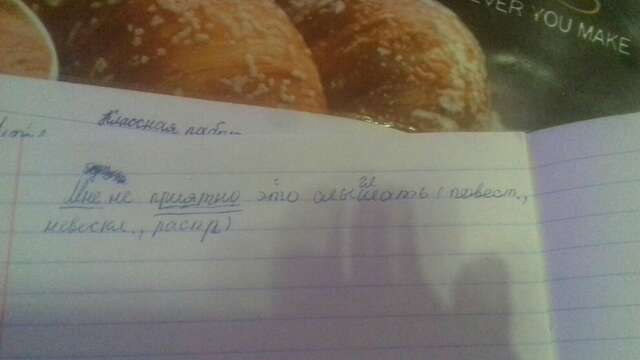 EVER YOU MAKE
Классная
Мне не приятно это слышать (повест.,
невоскл., распр)